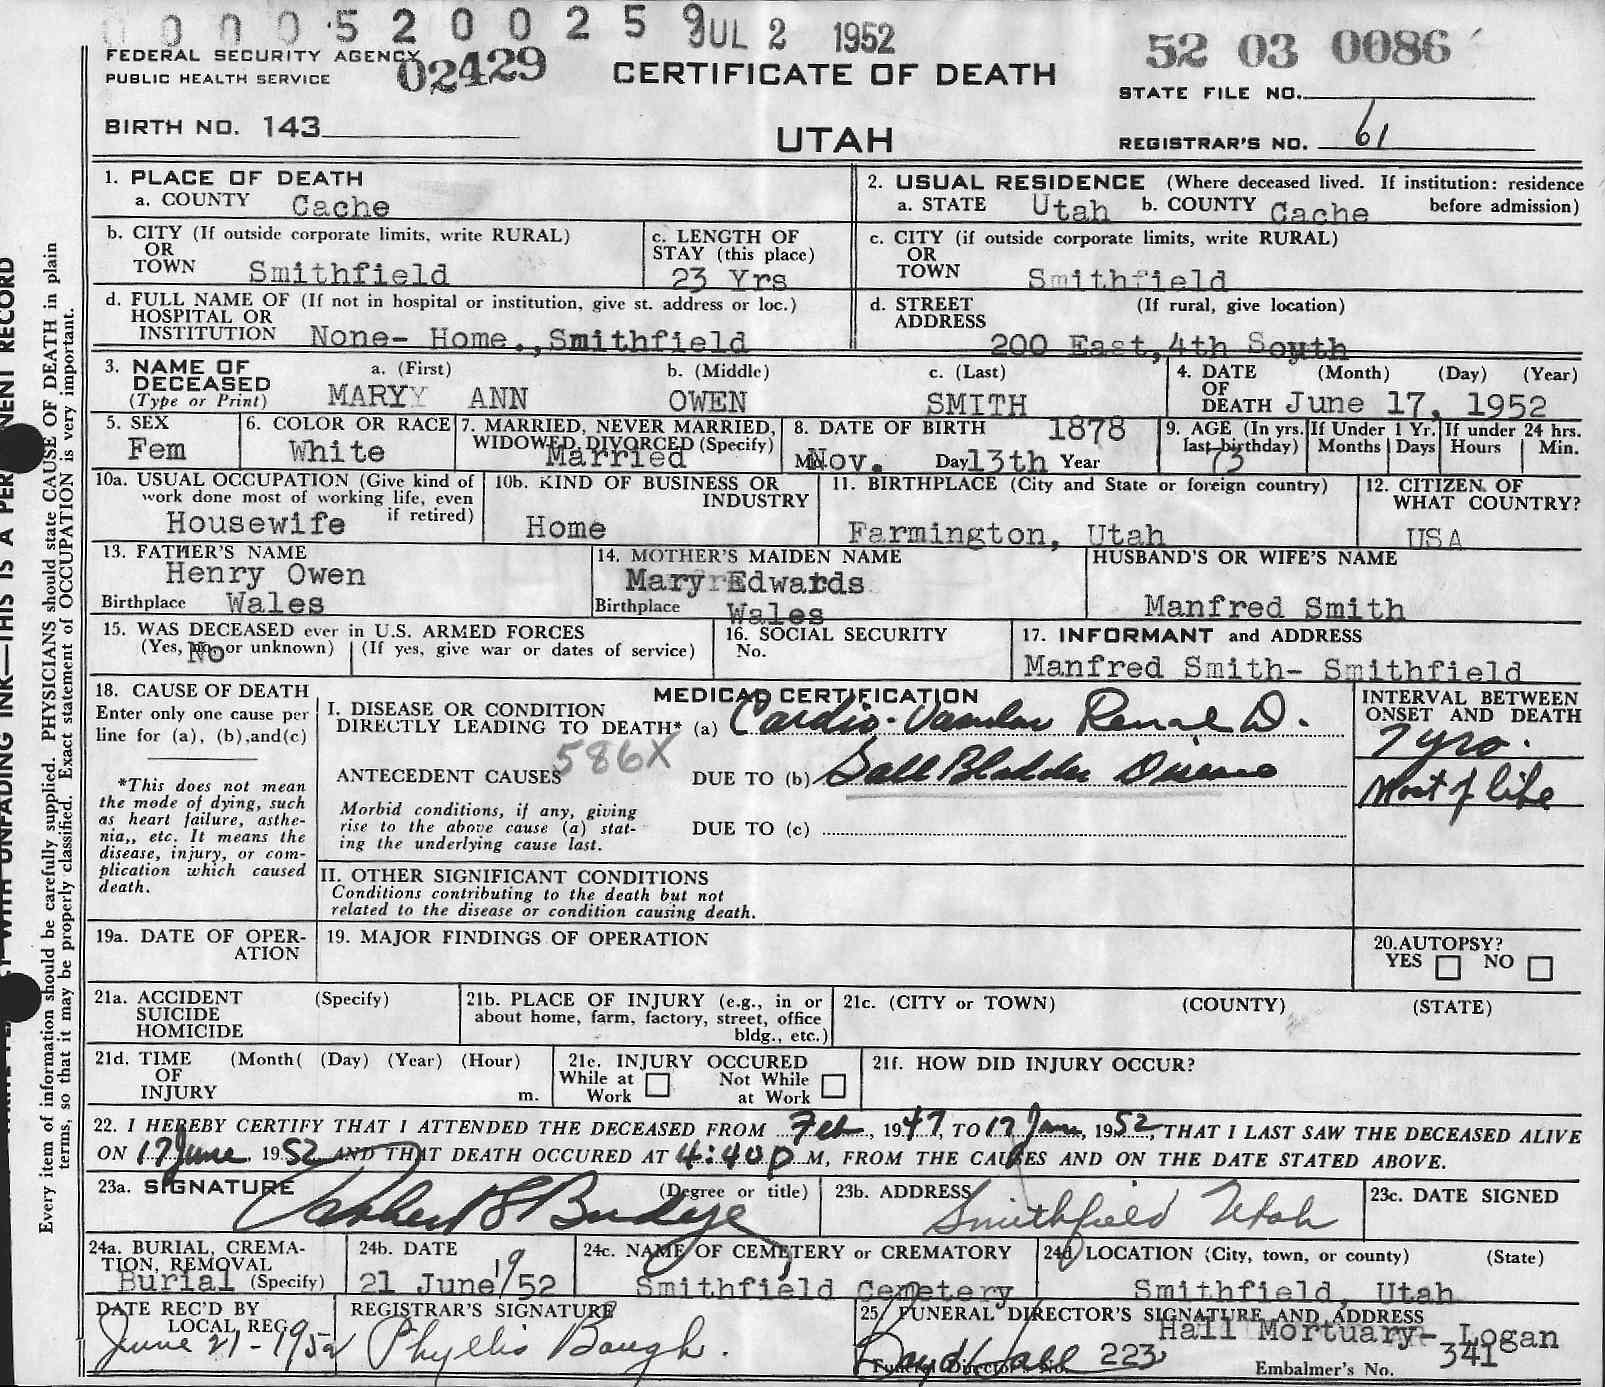 0 0 0 0 5 2 0 0 2 5 9 JUL 2 1952
52 03 0086
FEDERAL SECURITY AGENCY
PUBLIC HEALTH SERVICE
02429
CERTIFICATE OF DEATH
STATE FILE NO.
BIRTH NO. 143
UTAH
REGISTRAR'S NO. 61
1. PLACE OF DEATH
a. COUNTY Cache
2. USUAL RESIDENCE (Where deceased lived. If institution: residence
a. STATE Utah b. COUNTY Cache before admission)
b. CITY (If outside corporate limits, write RURAL)
OR
TOWN Smithfield
c. LENGTH OF
STAY (this place)
23 Yrs
c. CITY (if outside corporate limits, write RURAL)
OR
TOWN Smithfield
d. FULL NAME OF (If not in hospital or institution, give st. address or loc.)
HOSPITAL OR
INSTITUTION None- Home.,Smithfield
d. STREET (If rural, give location)
ADDRESS
200 East,4th South
3. NAME OF a. (First) b. (Middle) c. (Last)
DECEASED
(Type or Print) MARYY ANN OWEN SMITH
4. DATE (Month) (Day) (Year)
OF
DEATH June 17, 1952
5. SEX
Fem
6. COLOR OR RACE
White
7. MARRIED, NEVER MARRIED,
WIDOWED, DIVORCED (Specify)
Married
8. DATE OF BIRTH 1878
Nov. Day 13th Year
9. AGE (In yrs.
last birthday)
73
If Under 1 Yr.
Months Days
If under 24 hrs.
Hours Min.
10a. USUAL OCCUPATION (Give kind of
work done most of working life, even
if retired)
Housewife
10b. KIND OF BUSINESS OR
INDUSTRY
Home
11. BIRTHPLACE (City and State or foreign country)
Farmington, Utah
12. CITIZEN OF
WHAT COUNTRY?
USA
13. FATHER'S NAME
Henry Owen
Birthplace Wales
14. MOTHER'S MAIDEN NAME
Mary Edwards
Birthplace Wales
HUSBAND'S OR WIFE'S NAME
Manfred Smith
15. WAS DECEASED ever in U.S. ARMED FORCES
(Yes, no, or unknown) (If yes, give war or dates of service)
No
16. SOCIAL SECURITY
No.
17. INFORMANT and ADDRESS
Manfred Smith- Smithfield
18. CAUSE OF DEATH
Enter only one cause per
line for (a), (b),and(c)
*This does not mean
the mode of dying, such
as heart failure, asthe-
nia,, etc. It means the
disease, injury, or com-
plication which caused
death.
MEDICAL CERTIFICATION
I. DISEASE OR CONDITION
DIRECTLY LEADING TO DEATH* (a) Cardio-Vascular Renal D.
586X
ANTECEDENT CAUSES DUE TO (b) Gall Bladder Disease
Morbid conditions, if any, giving
rise to the above cause (a) stat-
ing the underlying cause last.
DUE TO (c)
INTERVAL BETWEEN
ONSET AND DEATH
7 yrs.
Most of life
II. OTHER SIGNIFICANT CONDITIONS
Conditions contributing to the death but not
related to the disease or condition causing death.
19a. DATE OF OPER-
ATION
19. MAJOR FINDINGS OF OPERATION
20.AUTOPSY?
YES NO
21a. ACCIDENT (Specify)
SUICIDE
HOMICIDE
21b. PLACE OF INJURY (e.g., in or
about home, farm, factory, street, office
bldg., etc.)
21c. (CITY or TOWN) (COUNTY) (STATE)
21d. TIME (Month( (Day) (Year) (Hour)
OF
INJURY m.
21e. INJURY OCCURED
While at Not While
Work at Work
21f. HOW DID INJURY OCCUR?
22. I HEREBY CERTIFY THAT I ATTENDED THE DECEASED FROM Feb, 1947, TO 17 June, 1952, THAT I LAST SAW THE DECEASED ALIVE
ON 17 June 1952 AND THAT DEATH OCCURED AT 4:40 p M, FROM THE CAUSES AND ON THE DATE STATED ABOVE.
23a. SIGNATURE (Degree or title)
Budge
23b. ADDRESS
Smithfield Utah
23c. DATE SIGNED
24a. BURIAL, CREMA-
TION, REMOVAL
Burial (Specify)
24b. DATE
21 June 19/52
24c. NAME OF CEMETERY or CREMATORY
Smithfield Cemetery
24d. LOCATION (City, town, or county) (State)
Smithfield, Utah
DATE REC'D BY
LOCAL REG.
June 21-1952
REGISTRAR'S SIGNATURE
Phyllis Baugh.
25. FUNERAL DIRECTOR'S SIGNATURE AND ADDRESS
Hall Mortuary- Logan
Boyd Hall 223
Funeral Director's No.
Embalmer's No. 341
Every item of information should be carefully supplied. PHYSICIANS should state CAUSE OF DEATH in plain
terms, so that it may be properly classified. Exact statement of OCCUPATION is very important.
WITH UNFADING INK—THIS IS A PERMANENT RECORD